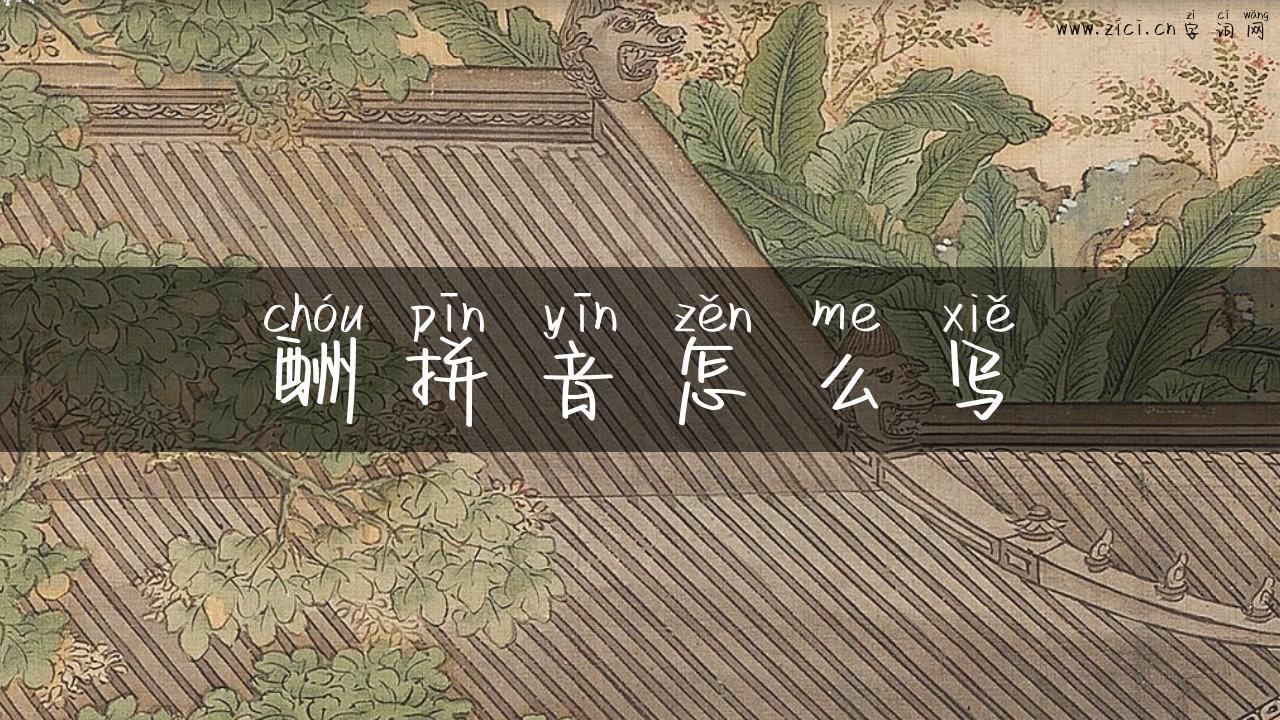 zì cí wǎng
www.zici.cn 字词网
chóu pīn yīn zěn me xiě
酬拼音怎么写